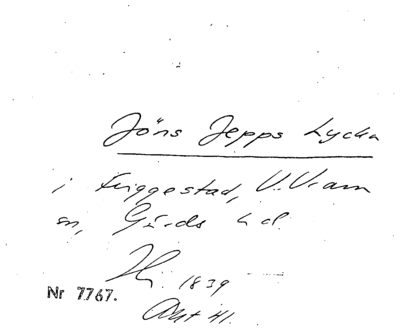 Jöns Jepps Lycka
i Friggestad, V. Vram
sn, Gärds hd.
1839
Nr 7767.
Akt 41.